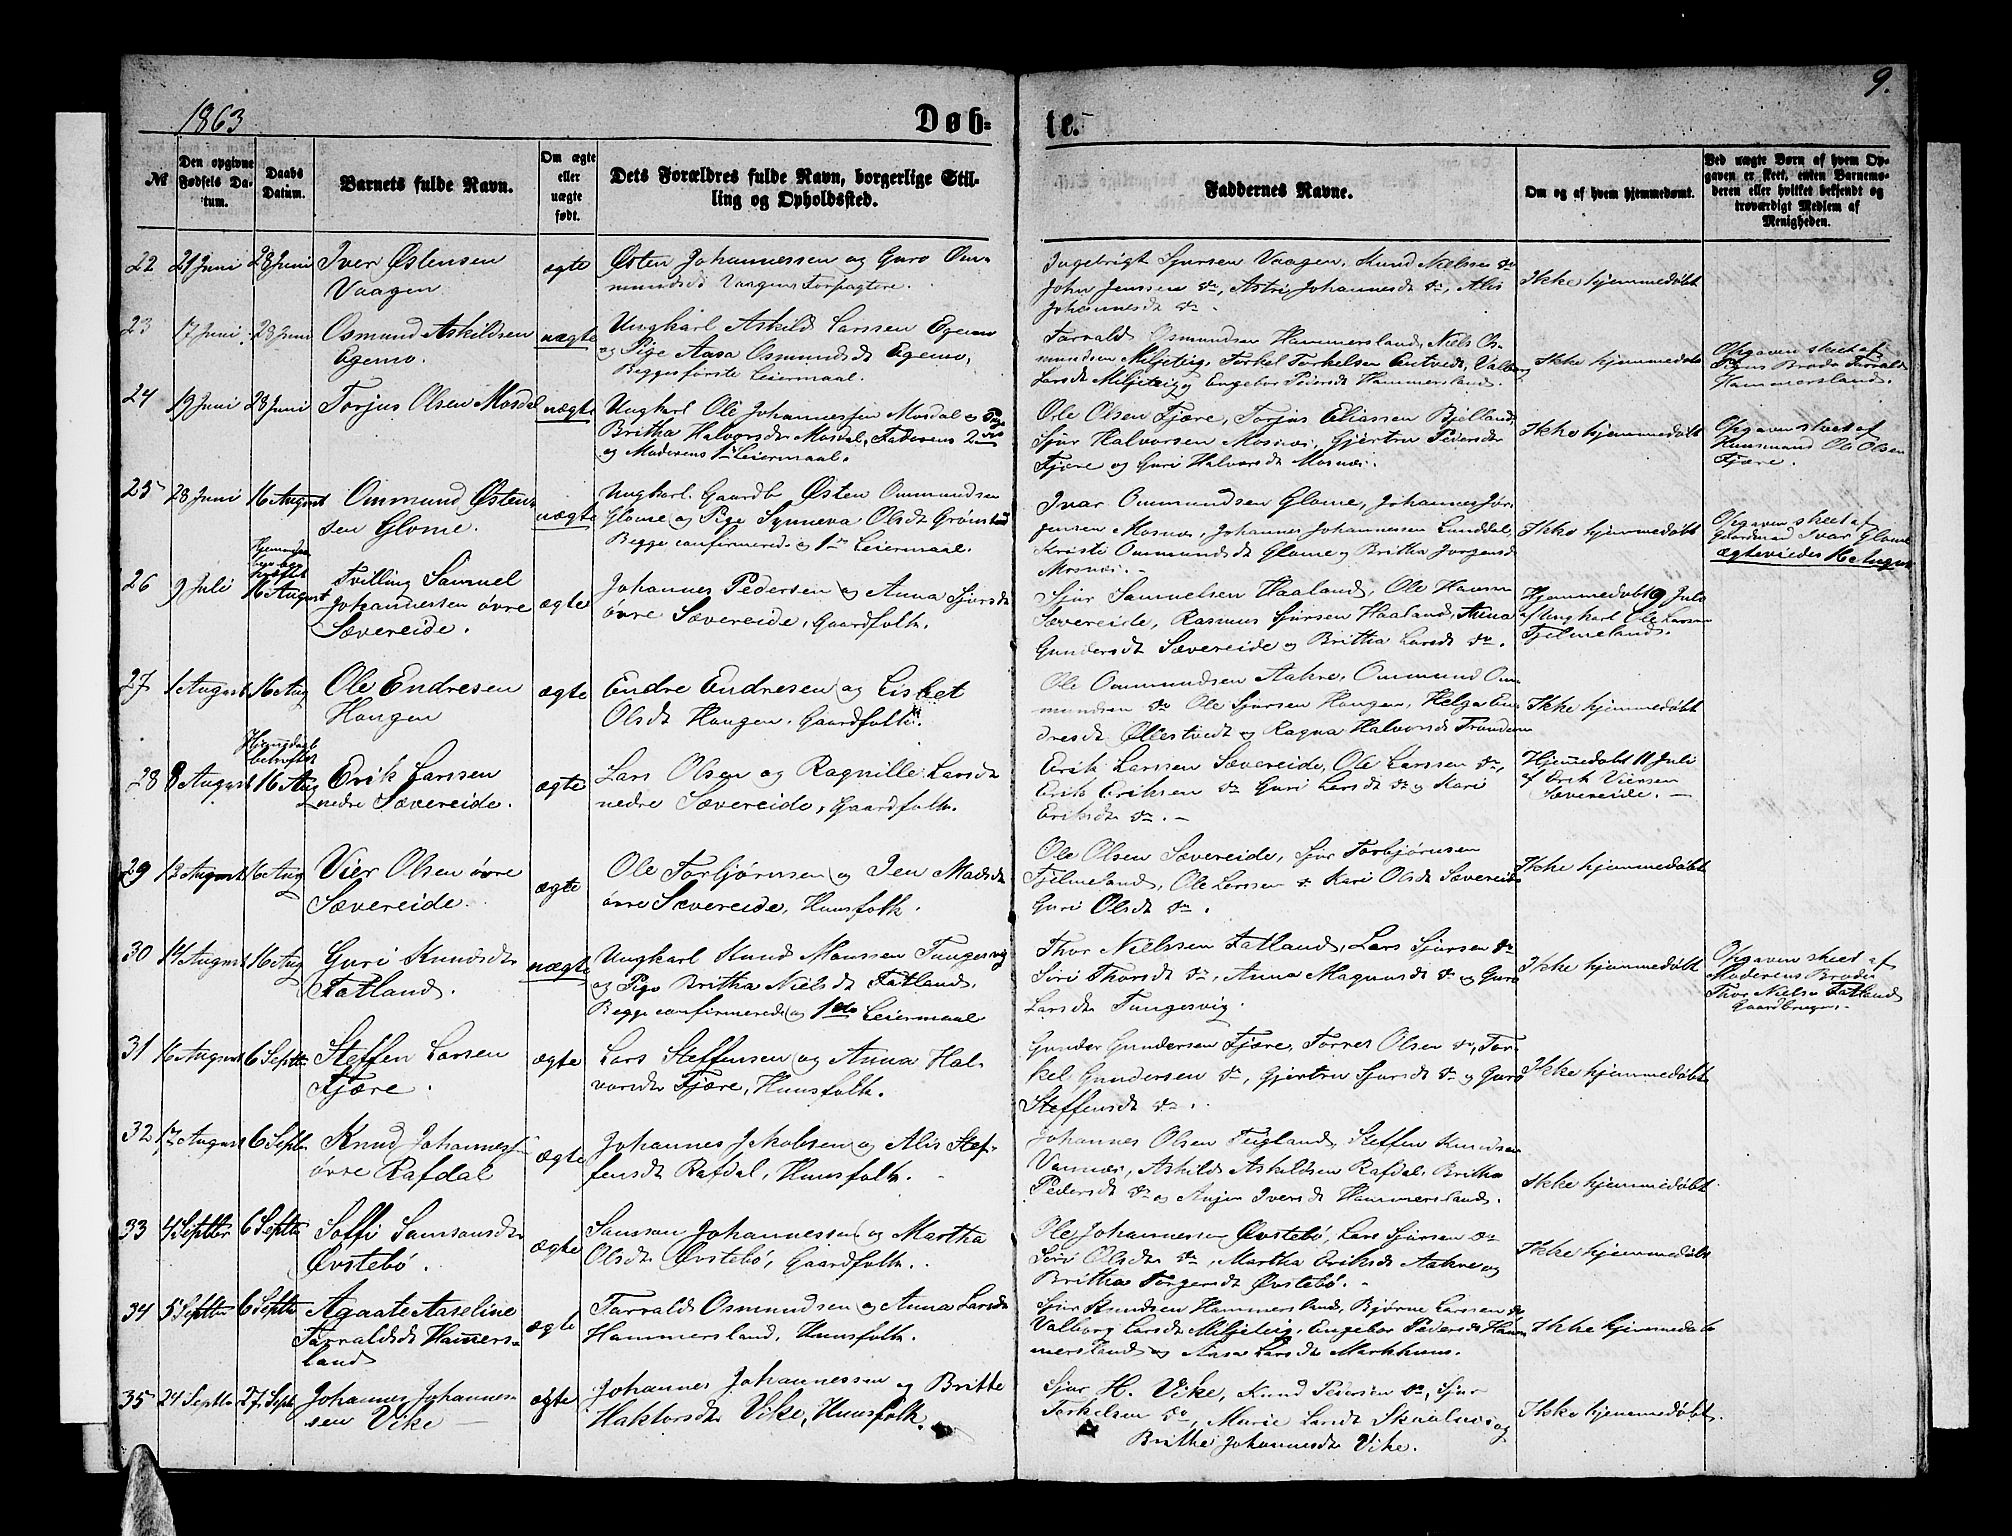 1863
Døbte.
9.
№
Den opgivne Fødsels Datum.
Daabs Datum.
Barnets fulde Navn.
Om ægte eller uægte født.
Dets Forældres fulde Navn, borgerlige Stilling og Opholdssted.
Faddernes Navne.
Om og af hvem hjemmedøbt.
Ved uægte Børn af hvem Opgaven er skeet, enten Barnemoderen eller hvilket bekjendt og troværdigt Medlem af Menigheden.
22 21 Juni 28 Juni Iver Østensen Vaagen ægte Østen Johannessen og Guro Ommundsdt Vaagen Forpagtere.
Ingebrigt Sjursen Vaagen, Knud Nielsen do
John Jenssen do, Astri Johannesdt do, Alis
Johannesdt do
Ikke hjemmedøbt
23 17 Juni 28 Juni Osmund Askildsen Egemo. uægte Ungkarl Askild Larssen Egemo
og Pige Aasa Osmundsdt Egemo,
Begges første Leiermaal.
Tarrald Osmundsen Hammersland, Niels Osmundsen Miljeteig, Torkel Torkelsen Entvedt, Valborg
Larsdt Miljeteig og Engebor Pedersdt Hammersland.
Ikke hjemmedøbt
Opgaven skeet af Pigens Broder Tarrald Hammersland.
24 19 Juni 28 Juni Torjus Olsen Mosdal uægte Ungkarl Ole Johannessen Mosdal og Pige
Britha Halvorsdt Mosdal, Faderens 2det
og Moderens 1ste Leiermaal.
Ole Olsen Fjære, Torjus Eliassen Bjelland,
Sjur Halvorsen Mosnæs, Gjertru Pedersdt
Fjære og Guri Halvorsdt Mosnæs.
Ikke hjemmedøbt
Opgaven skeet af Huusmand Ole Olsen Fjære.
25 28 Juni 16 August Ommund Østensen Glome. uægte Ungkarl Gaardb. Østen Ommundsen
Glome og Pige Synneva Olsdt Grønstad
Begge confirmerede og 1ste Leiermaal.
Ivar Ommundsen Glome, Johannes Jørgensen Mosnæs, Johannes Johannessen Lunddal,
Kristi Ommundsdt Glome og Britha Jørgensdt
Mosnæs.
Ikke hjemmedøbt
Opgaven skeet af Gaardmand Ivar Glome ægteviedes 16 August
26 9 Juli 16 August Tvilling Samuel Johannessen øvre Sævereide. ægte Johannes Pedersen og Anna Sjursdt
øvre Sævereide, Gaardfolk.
Sjur Samuelsen Haaland, Ole Hansen
Sævereide, Rasmus Sjursen Haaland, Anna
Gundersdt Sævereide og Britha Larsdt do.
Hjemmedøbt 9 Juli af Ungkarl Ole Larsen Fjelmeland.
27 1 August 16 Aug Ole Endresen Haugen ægte Endre Endresen og Lisbet
Olsdt Haugen, Gaardfolk.
Ole Ommundsen Aakre, Ommund Ommundsen do Ole Sjursen Haugen, Helga Endresdt Øllestvedt og Ragna Halvorsdt
Ikke hjemmedøbt
Hjemmedaab bekræftet
28 8 August 16 Aug Erik Larssen nedre Sævereide. ægte Lars Olsen og Ragnille Larsdt
nedre Sævereide, Gaardfolk.
Erik Larssen Sævereide, Ole Larssen do,
Erik Eriksen do Guri Larsdt do og Kari
Eriksdt do. -
Hjemmedøbt 11 Juli af Erik Viersen Sævereide. -
29 13 August 16 Aug Vier Olsen øvre Sævereide. ægte Ole Torbjørnsen og Jen Madsdt
øvre Sævereide, Huusfolk.
Ole Olsen Sævereide, Sjur Torbjørnsen
Fjelmeland, Ole Larssen do Kari Olsdt Sævereide
Guri Olsdt do.
Ikke hjemmedøbt
30 14 August 16 Aug Guri Knudsdt Fatland. uægte Ungkarl Knud Monssen Tungesvig
og Pige Britha Nielsdt Fatland,
Begge confirmerede og 1ste Leiermaal
Thor Nielssen Fatland, Lars Sjursen do
Siri Thorsdt do, Anna Magnusdt do og Guro
Larsdt Tungesvig.
Ikke hjemmedøbt
Opgaven skeet af Moderens Broder Thor Nielsen Fatland Gaardbruger.
31 16 August 6 Septbr Steffen Larsen Fjære. ægte Lars Steffensen og Anna Halvorsdt Fjære, Huusfolk.
Gunder Gundersen Fjære, Torres Olsen do, Torkel Gundersen do, Gjertru Sjursdt do og Guro
Steffensdt do.
Ikke hjemmedøbt
32 17 August 6 Septbr Knud Johannessen øvre Rafdal ægte Johannes Jakobsen og Alis Steffensdt Rafdal, Huusfolk.
Johannes Olsen Teigland, Steffen Knudsen
Vannæs, Askild Askildsen Rafdal, Britha
Pedersdt do og Anjer Iversdt Hammersland.
Ikke hjemmedøbt
33 4 Septbr 6 Septbr Soffi Samsonsdt Øvstebø. ægte Samson Johannessen og Martha
Olsdt Øvstebø, Gaardfolk.
Ole Johannessen Øvstebø, Lars Sjursen do
Siri Olsdt do, Martha Eriksdt Aakre og
Britha Torgersdt Øvstebø. -
Ikke hjemmedøbt
34 5 Septbr 6 Septbr Agaate Aaseline Tarraldsdt Hammersland ægte Tarrald Osmundsen og Anna Larsdt
Hammersland, Huusfolk.
Sjur Knudsen Hammersland, Bjørne Larssen do
Valborg Larsdt Miljeteig, Engebor Pedersdt Hammersland og Aasa Larsdt Markhuus.
Ikke hjemmedøbt
35 24 Septbr 27 Septbr Johannes Johannessen Vike ægte Johannes Johannessen og Britte
Haktorsdt Vike, Huusfolk.
Sjur H. Vike, Knud Pedersen do, Sjur
Torkelsen do, Marie Larsdt Skaalnæs og
Britha Johannesdt Vike.
Ikke hjemmedøbt.